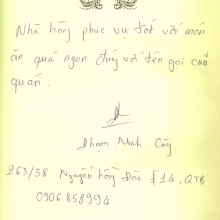 Nhà hàng phục vụ tốt với món
ăn quá ngon đúng với tên gọi của
quán.
Phạm Minh Cây
263/38 Nguyễn Hồng Đào f14, QTB
0906858994